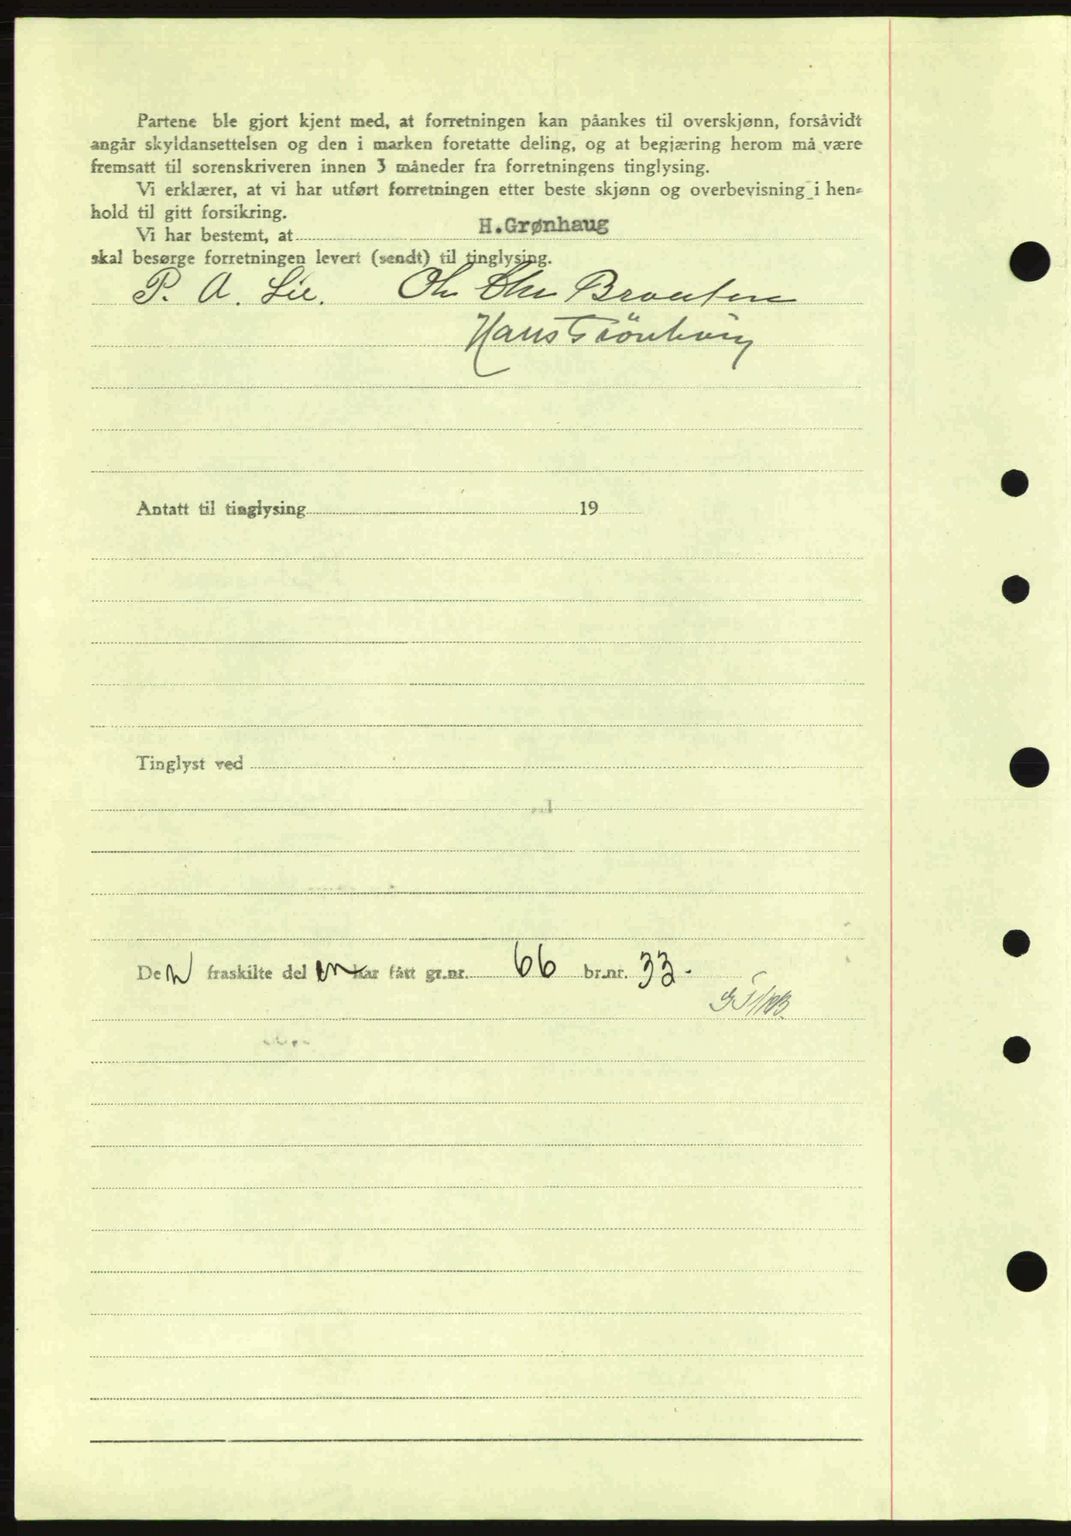 Partene ble gjort kjent med, at forretningen kan påankes til overskjønn, forsåvidt
angår skyldansettelsen og den i marken foretatte deling, og at begjæring herom må være
fremsatt til sorenskriveren innen 3 måneder fra forretningens tinglysing.
Vi erklærer, at vi har utført forretningen etter beste skjønn og overbevisning i hen-
hold til gitt forsikring.
Vi har bestemt, at H.Grønhaug
skal besørge forretningen levert (sendt) til tinglysing.
P. A. Lie. Ole Braaten
Hans Grönhaug
Antatt til tinglysing 19
Tinglyst ved
Den fraskilte del en har fått gr.nr. 66 br.nr. 33.